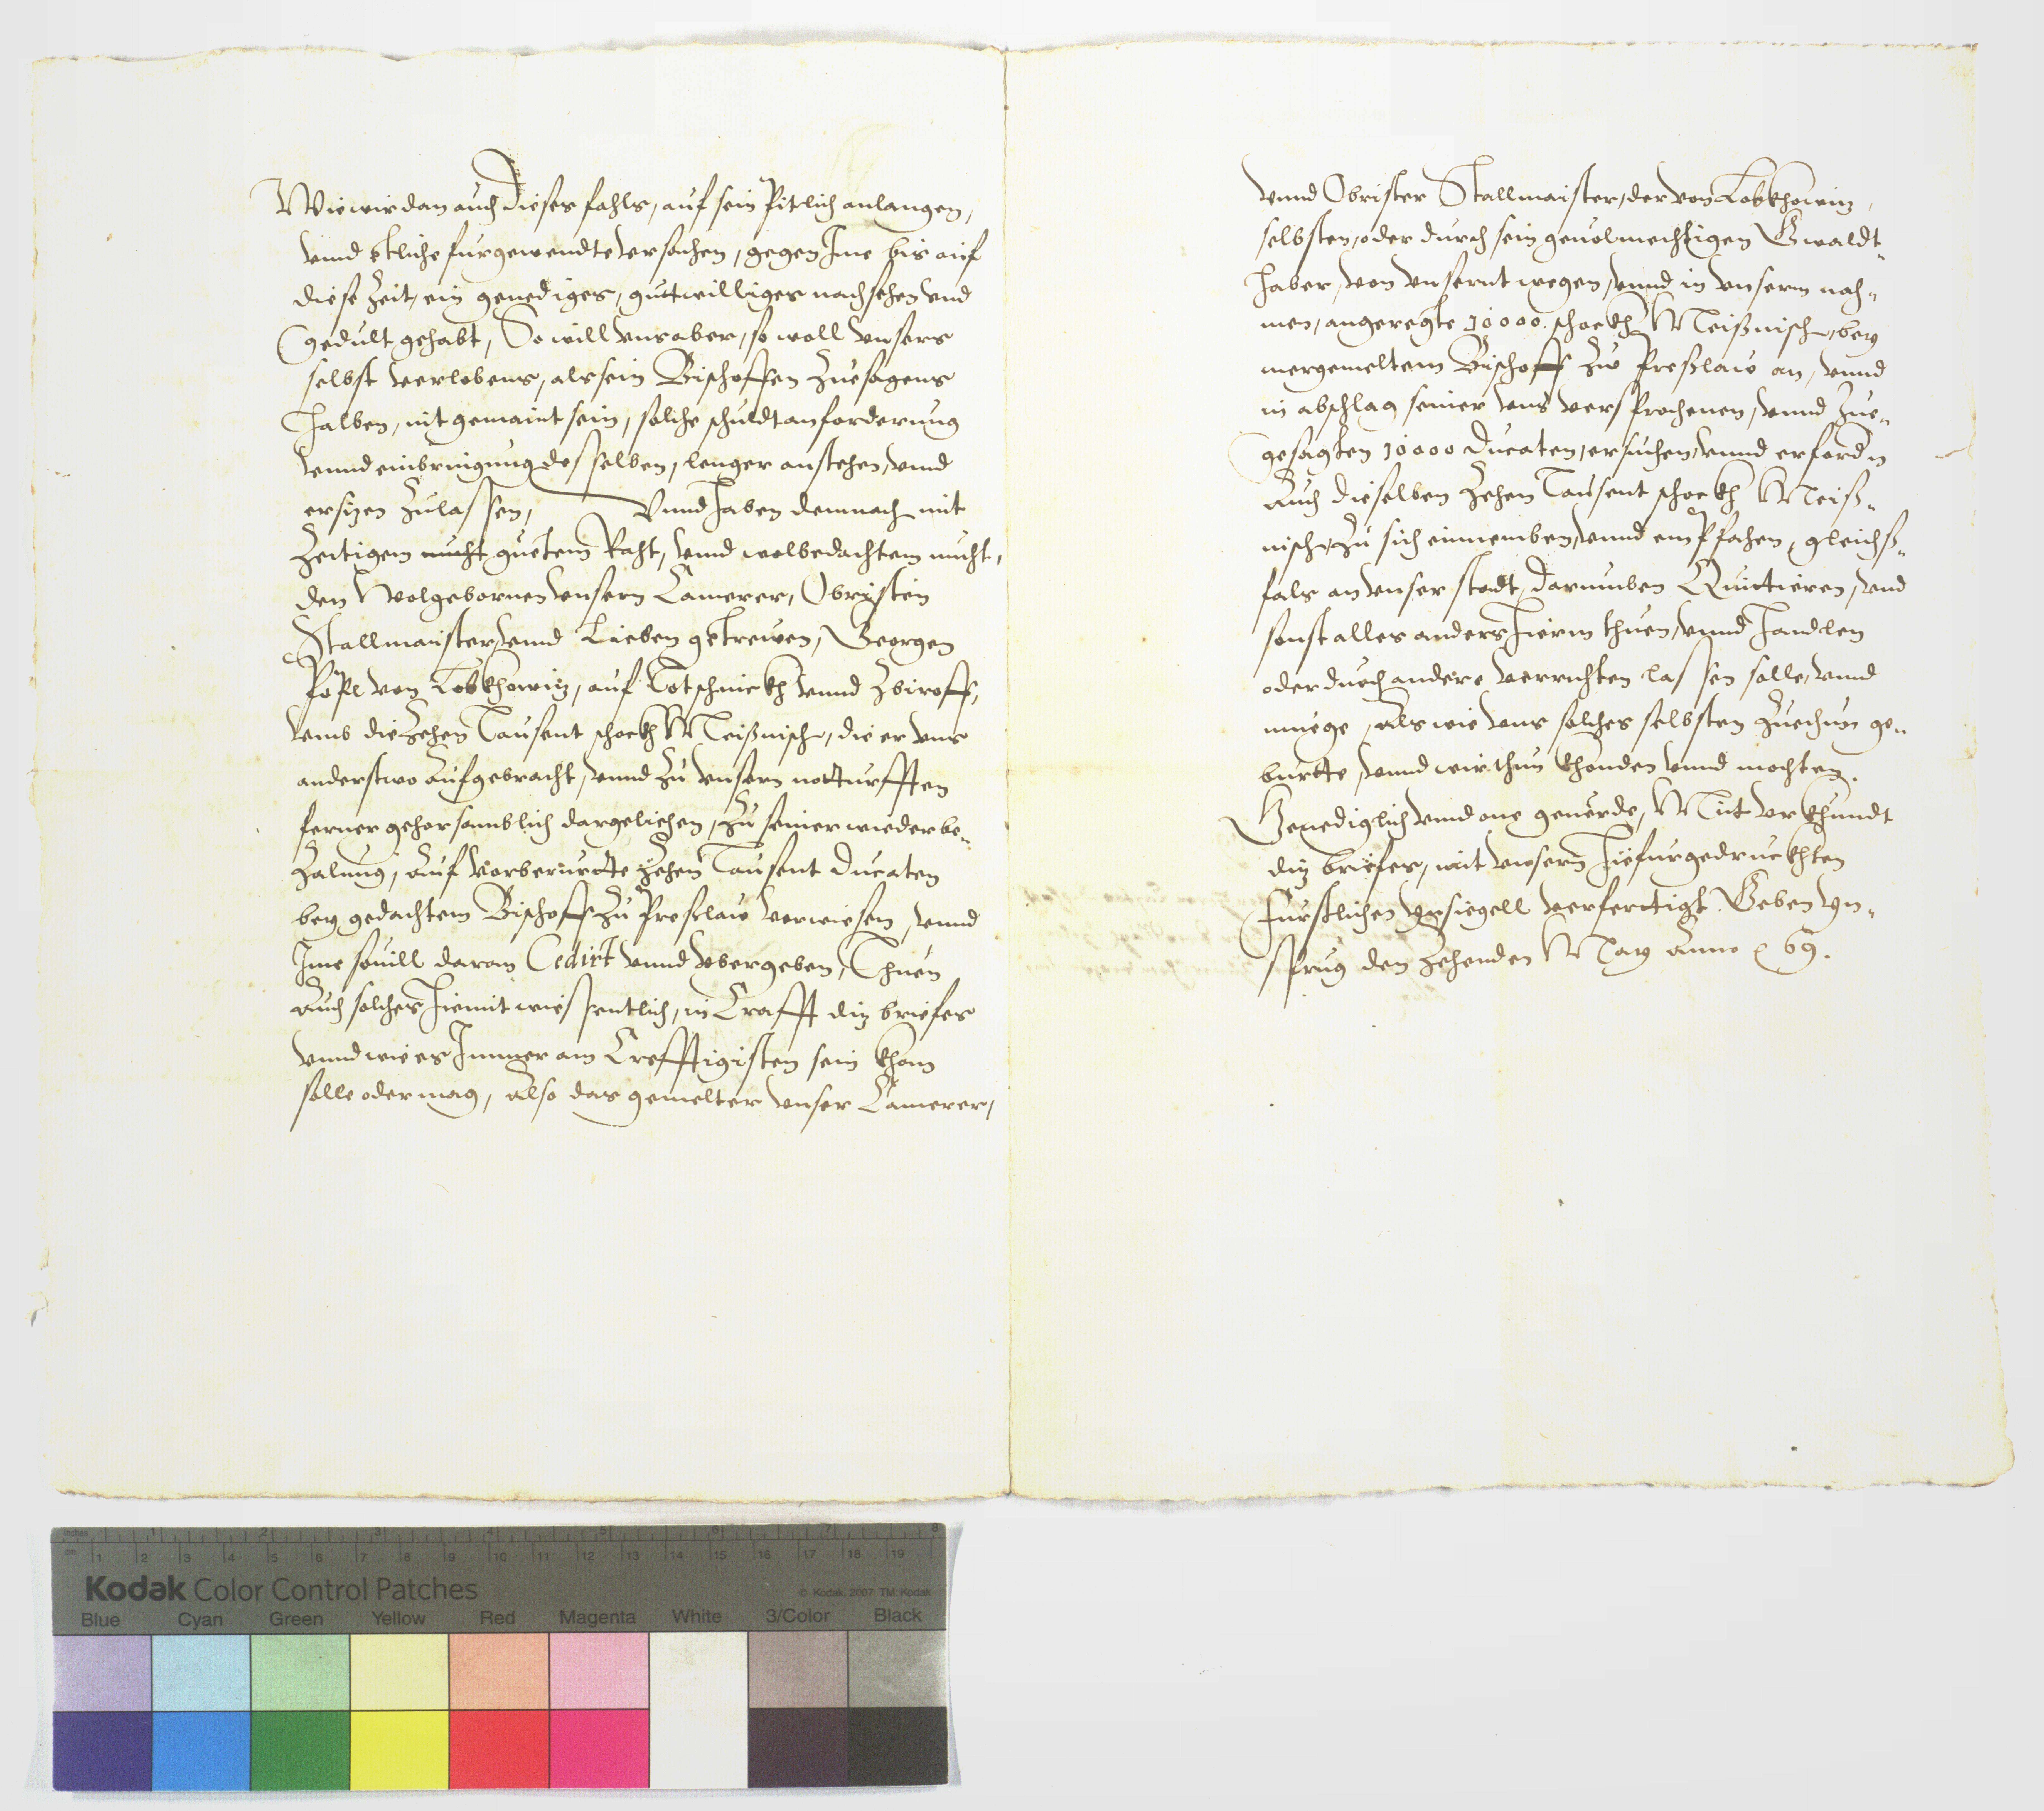 Wie wir dan auch dieses fahls, auf sein Pitlich anlangen,
vnnd etliche furgewendte vrsachen, gegen Ime bis auf
diese Zeit, ein genediges, guttwilliges nachsehen vnd
Gedult gehabt, So will vns aber, so woll vnsers
selbst verlebens, als sein Bischoffen Zuesagens
halben, nit gemaint sein, solche schuldtanforderung
vnnd einbringung desselben, lenger anstehen, vnnd
ersizen Zulassen, Vnnd haben demnach mit
Zeitigem guetem Raht, vnnd wolbedachtem mueht,
den Wolgebornen vnsern Camerer, Obristen
Stallmaister, vnnd Lieben getrewen, Georgen
Popl von Lobkhowiz, auf Totschnickh vnnd Zbiroff,
vmb die Zehen Tausent schockh Meißnisch, die er vns
anderstwo aufgebracht, vnnd Zu vnsern notturfften
ferner gehorsamblich dargeliehen, Zu seiner wiederbe-
Zalung, auf vorberuertte Zehen Tausent Ducaten
bey gedachtem Bischoff Zu Preslaw verwiesen, vnnd
Ime souill daran Cedirt vnnd vbergeben, Thuen
auch solches hiemit wissentlich, in Crafft diz briefes
vnnd wie es Immer am Crefftigisten sein khan
solle oder mag, also das gemelter vnser Camerer,
vnnd Obrister Stallmaister, der von Lobkhowiz,
selbsten, oder durch sein geuolmechtigen Gwaldt-
haber, von vnsernt wegen, vnnd in vnserm nah-
men, angeregte 10000. schockh Meißnisch, bey
mergemeltem Bischoff Zw Preslaw an, vnnd
in abschlag seiner vns versprochenen, vnnd Zue-
gesagten 10000 Ducaten, ersuchen, vnnd erfordn
auch dieselben Zehen Tausent schockh Meiß-
nisch, Zu sich einnemben, vnnd emPfahen, gleichß-
fals an vnser stadt, darumben Quittieren, vnd
sonst alles anders hierin thuen, vnnd handlen
oder durch andere verrichten lassen solle, vnnd
muege, als wie vns solches selbsten Zuethun ge-
burtte, vnnd wir thun khonden vnnd mochten.
Genediglich vnnd one geuerde, Mit vrkhundt
diz briefes, mit vnserm hiefurgedruckhten
Furstlichen Insiegell verferttigt. Geben Yn-
sprug den Zehenden May Anno 69.
1 2 3 4 5 6 7 8
inches
cm 1 2 3 4 5 6 7 8 9 10 11 12 13 14 15 16 17 18 19
Kodak Color Control Patches © Kodak, 2007 TM: Kodak
Blue Cyan Green Yellow Red Magenta White 3/Color Black